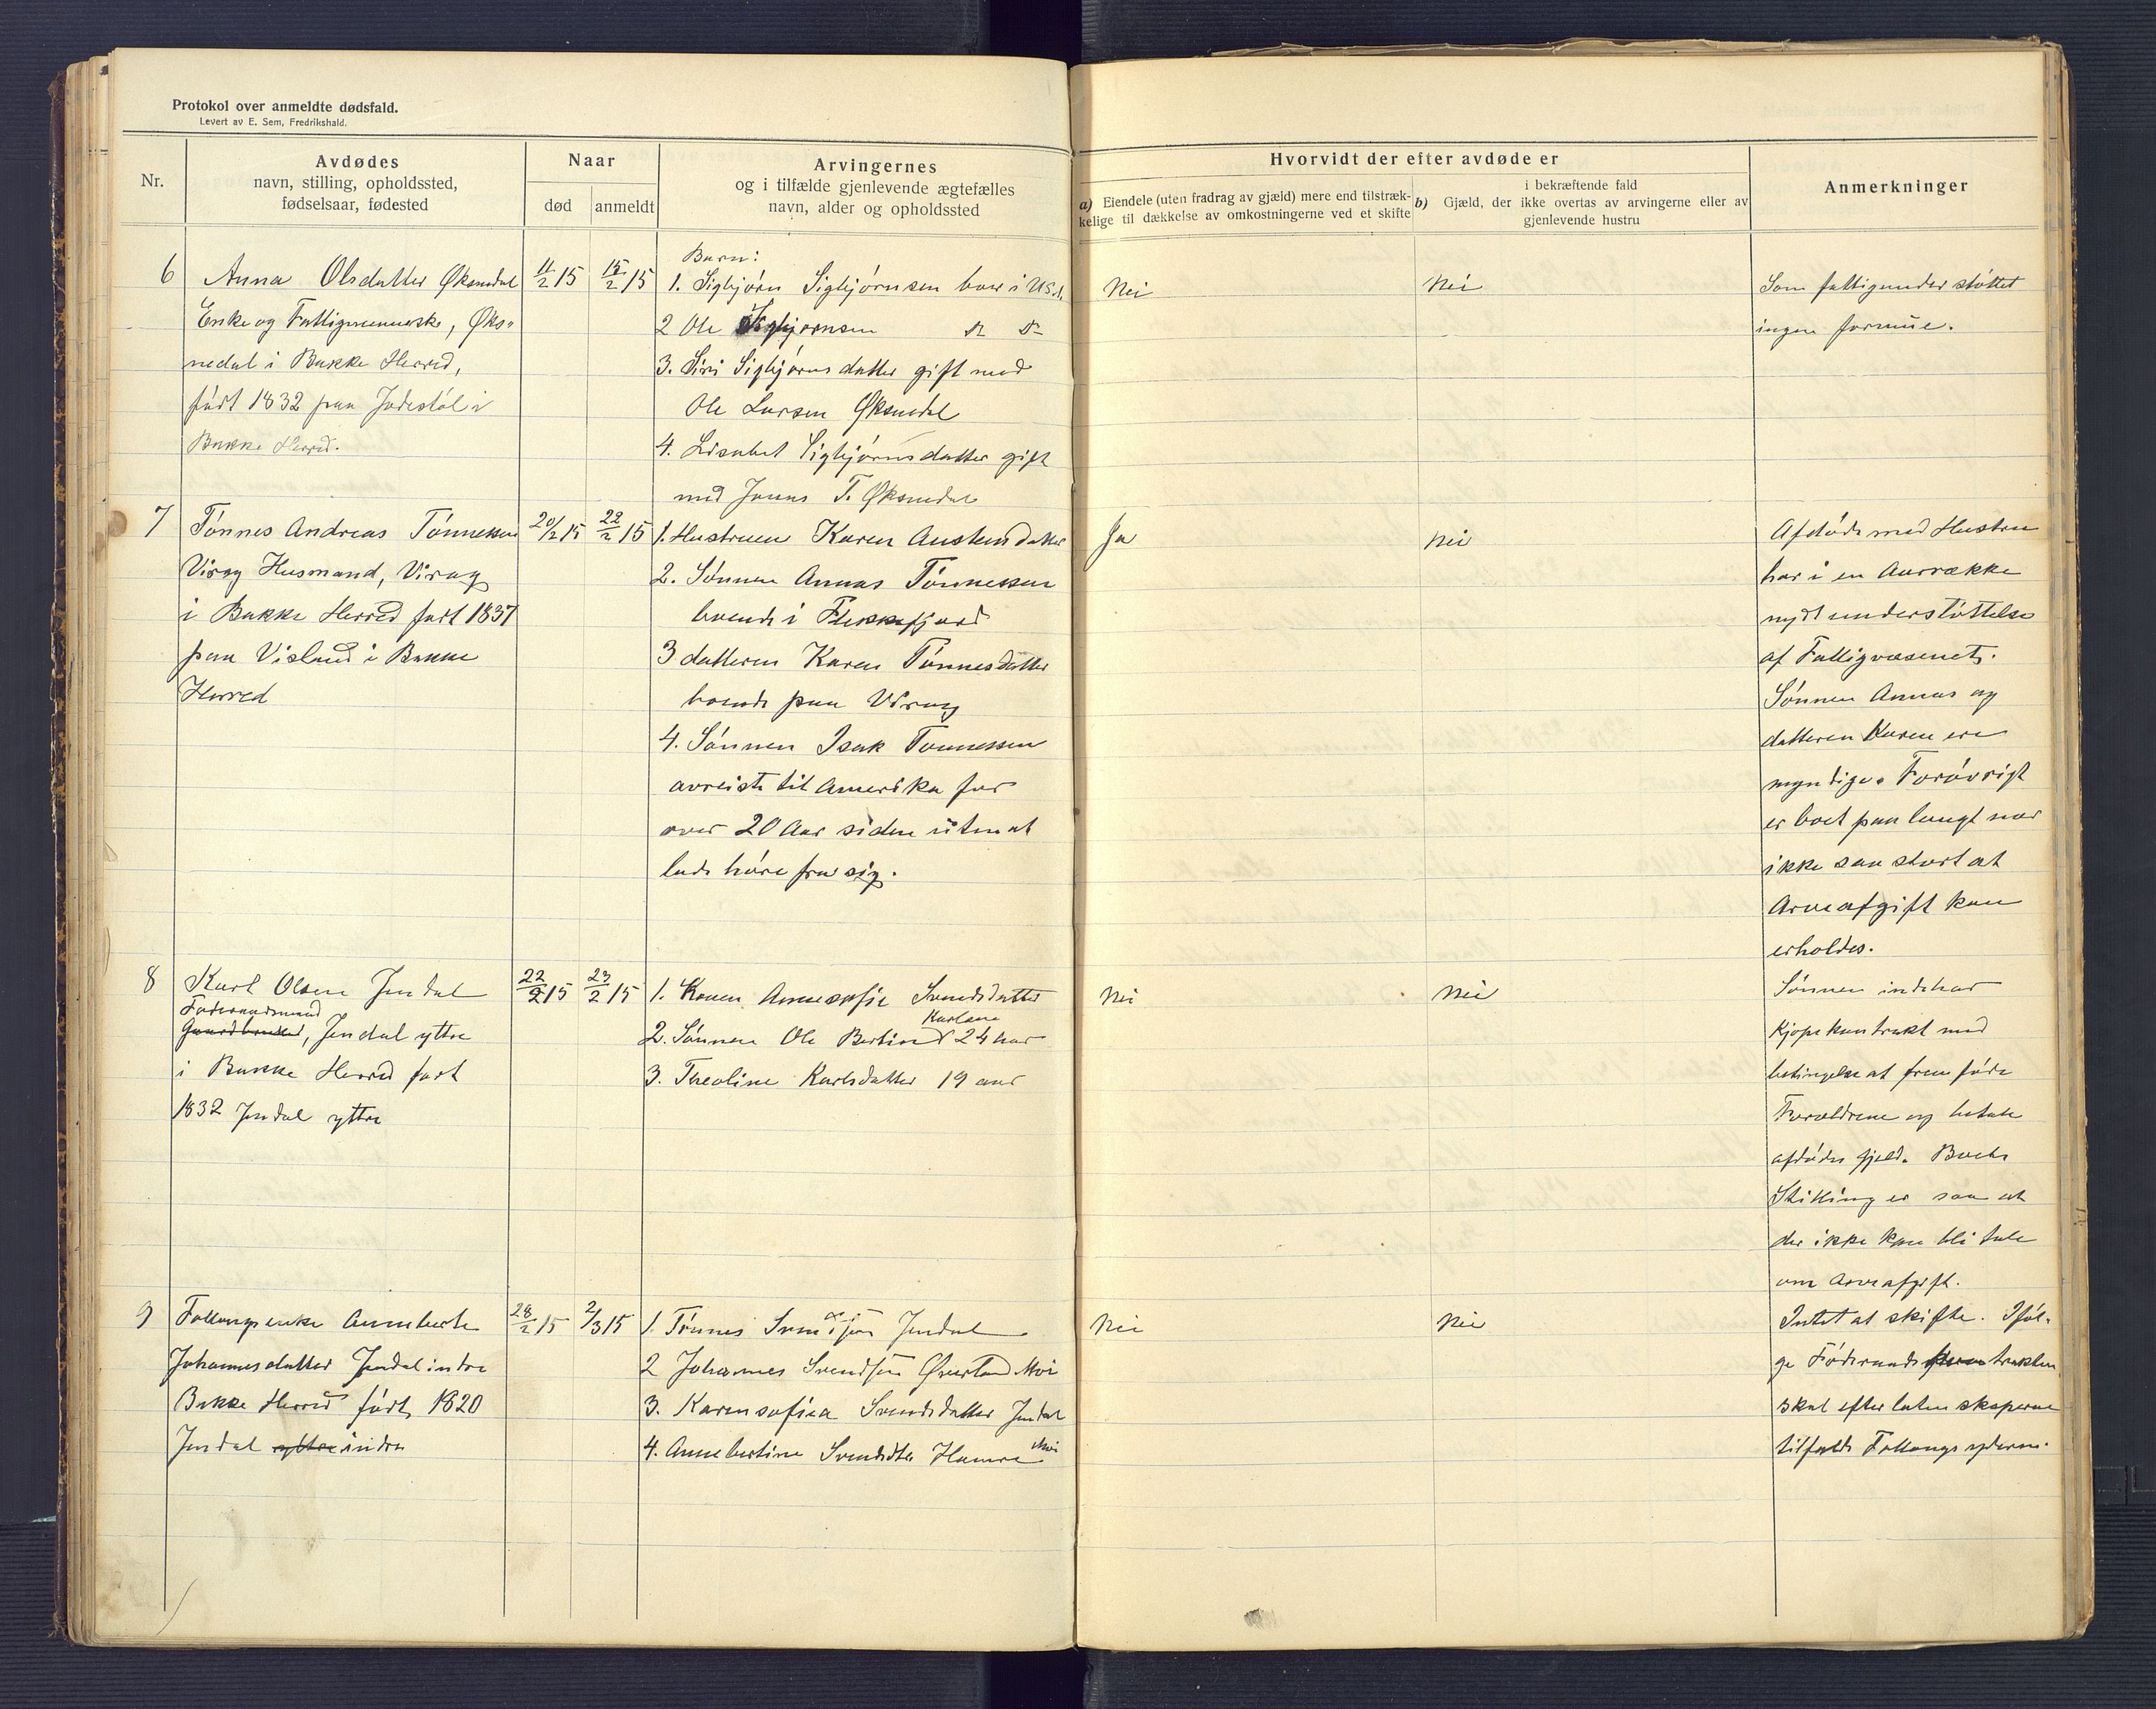 Protokol over anmeldte dødsfald.
Levert av E. Sem, Fredrikshald.
Nr.
Avdødes
navn, stilling, opholdssted,
fødselsaar, fødested
Naar
død
anmeldt
Arvingernes
og i tilfælde gjenlevende ægtefælles
navn, alder og opholdssted
Hvorvidt der efter avdøde er
a) Eiendele (uten fradrag av gjæld) mere end tilstræk-
kelige til dækkelse av omkostningerne ved et skifte
i bekræftende fald
b) Gjæld, der ikke overtas av arvingerne eller av
gjenlevende hustru
Anmerkninger
6
Anna Olsdatter Øksendal
Enke og Fattiglemmerske, Øks-
nedal i Bakke Herred,
født 1832 paa Jødestøl i
Bakke Herred.
11/2 15
15/2 15
Barn:
1. Sigbjørn Sigbjørnsen bor i U.S.A.
2 Ole Sigbjørnsen
3. Siri Sigbjørnsdatter gift med
Ole Larsen Øksendal
4. Lisabet Sigbjørnsdatter gift
med Jonas T. Øksendal
Nei
Nei
Som fattigunderstøttet
ingen formue.
7
Tønnes Andreas Tønnessen
Virag Husmand, Virag
i Bakke Herred født 1837
paa Visland i Bakke
Herred
20/2 15
22/2 15
1. Hustruen Karen Austensdatter
2. Sønnen Annas Tønnessen
boende i Flekkefjord
3 datteren Karen Tønnesdatter
boende paa Virag
4. Sønnen Isak Tønnessen
avreiste til Amerika for
over 20 Aar siden uten at
lade høre fra sig.
Ja
Nei
Afdøde med Hustru
har i en Aarrække
nydt understøttelse
af Fattigvæsenet.
Sønnen Annas og
datteren Karen ere
myndige. Forøvrigt
er boet paa langt nær
ikke saa stort at
Arveafgift kan
erholdes.
8
Karl Olsen Jendal
Føderaadsmand
Gaardbruker, Jendal yttre
i Bakke Herred født
1832 Jendal yttre
22/2 15
23/2 15
1. Konen Annesofie Svendsdatter
Karlsen
2. Sønnen Ole Bertin 24 aar
3. Theoline Karlsdatter 19 aar
Nei
Nei
Sønnen indehar
Kjøpekontrakt med
betingelse at fremføde
Forældrene og betale
afdødes gjeld. Boets
Stilling er saa at
der ikke kan bli tale
om Arveafgift.
9
Follougsenke Anneberte
Johannesdatter Jendal indre
Bakke Herred født 1820
Jendal yttre indre
28/2 15
2/3 15
1. Tønnes Jendal
2 Johannes Svendsen Øverland Moi
3. Karensofie Svendsdatter Jendal
4. Annebertine Svendsdtr Hamre Moi
Nei
Nei
Intet at skifte. Iføl-
ge Føderaadskontrakten
skal efterladenskaperne
tilfalde Follougsyderne.